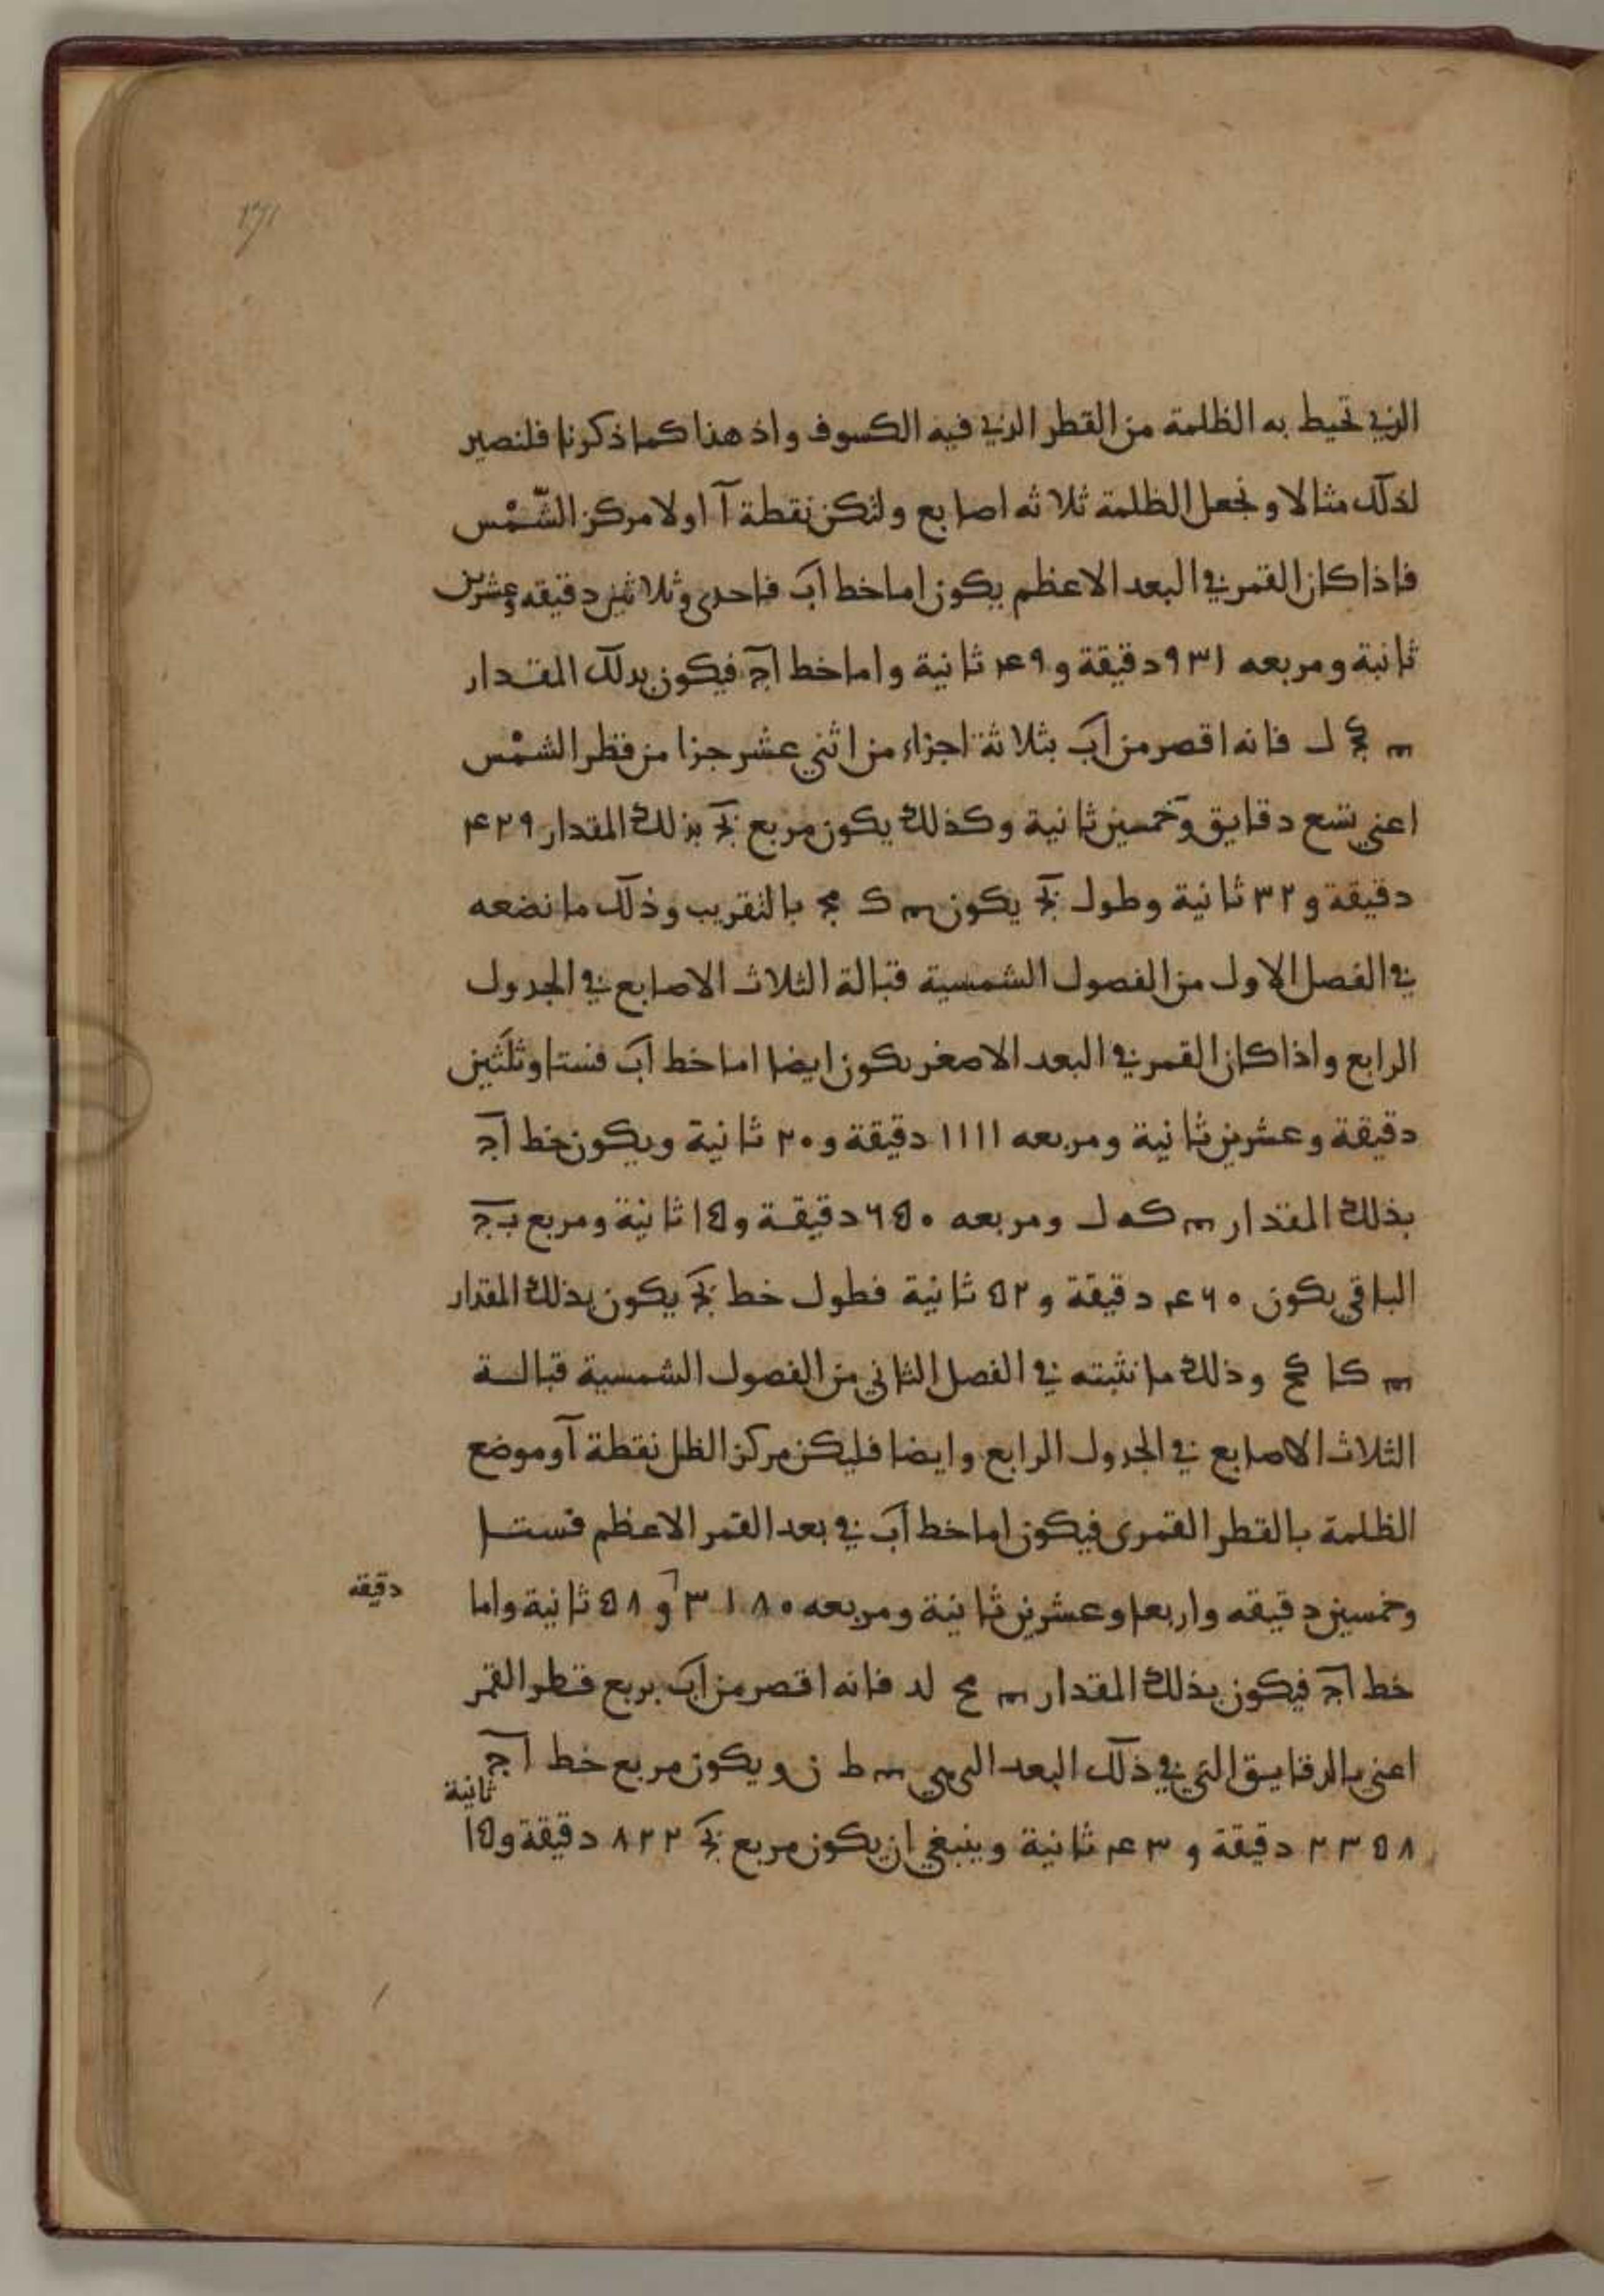 ١٧١
الذي تحيط به الظلمة من القطر الذي فيه الكسوف واذ هذا كما ذكرنا فلنصير
لذلك مثالا ونجعل الظلمة ثلاثه اصابع ولتكن نقطة آ اولا مركز الشّمْس
فاذا كان القمر في البعد الاعظم يكون اما خط اب فاحدى وثلاثين دقيقه وعشرين
ثانية ومربعه ٩٣١ دقيقة و ٤٩ ثانية واما خط اج فيكون بدلك المقدار
كج ل فانه اقصر من اب بثلاثة اجزاء من اثني عشر جزا من قطر الشمْس
اعني تسع دقايق وخمسين ثانية وكذلك يكون مربع بج بذلك المقدار ٤٢٩
دقيقة و ٣٢ ثانية وطول بج يكون ك مج بالتقريب وذلك ما نضعه
في الفصل الاول من الفصول الشمسية قبالة الثلاث الاصابع في الجدول
الرابع واذا كان القمر في البعد الاصغر يكون ايضا اما خط اب فستا وثلثين
دقيقة وعشرين ثانية ومربعه ١١١١ دقيقة و ٢٠ ثانية ويكون خط اج
بذلك المقدار كه ل ومربعه ٦٥٠ دقيقة و ١٥ ثانية ومربع بج
الباقي يكون ٤٦٠ دقيقة و ٥٢ ثانية فطول خط بج يكون بذلك المقدار
كا كح وذلك ما نثبته في الفصل الثاني من الفصول الشمسية قبالة
الثلاث الاصابع في الجدول الرابع وايضا فليكن مركز الظل نقطة آ وموضع
الظلمة بالقطر القمرى فيكون اما خط اب في بعد القمر الاعظم فستا
وخمسين دقيقه واربعا وعشرين ثانية ومربعه ٣١٨٠ و ٥٨ ثانية واما
دقيقه
خط اج فيكون بذلك المقدار مح لد فانه اقصر من اب بربع قطر القمر
اعني بالدقايق التي في ذلك البعد ط ن ويكون مربع خط اج
٢٣٥٨ دقيقة و ٤٣ ثانية وينبغي ان يكون مربع بج ٨٢٢ دقيقة و ١٥
ثانية